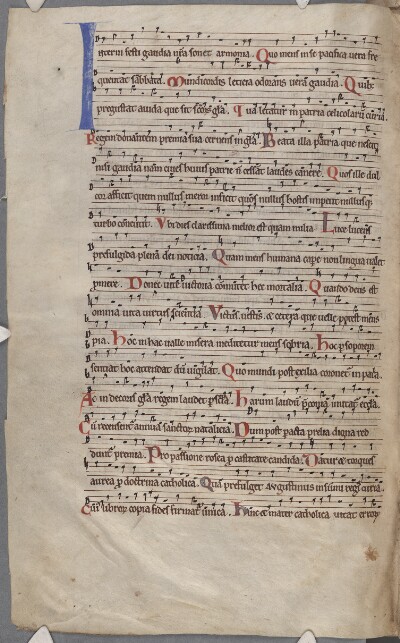 Interni festi gaudia nr̄a sonet armonia. Quo mens in se pacifica uera fre
quentat sabbata. Mundi cordis leticia odorans uera gaudia. Quib:
pregustat auida que sit sc̄or̄ gl̄a. Qua letatur in patria celicolarū curia
Regem donantem premia sua cernens in gl̄a. Beata illa patria que nescit
nisi gaudia nam ciues huius patrie n̄ cessāt laudes canere. Quos ille dul
cor afficit quem nullus meror inficit quos nullus hostis impetit nullusq:
turbo concutit. Vbi dies clarissima melior est quam milia Luce lucens
prefulgida plena dei noticia. Quam mens humana capere non lingua ualet
p̄mere. Donec uite uictoria cōmutet hec mortalia. Quando deus est
omnia uita uirtus scientia Victus uestis et cetera que uelle potest mens
pia. Hoc in hac ualle misera meditetur mens sobria. Hoc p̄ soporem
sentiat hoc attendat dū uigilat. Quo mundi post exilia coronet in patria.
Ac in decoris gl̄a regem laudet p̄ sc̄la. Harum laudū p̄conia imitat̄ eccl̄a.
Cū recensent̄ annua sanctor̄ natalicia. Dum post pacta prelia digna red
dunt̄ premia. Pro passione rosea p̄ castitate candida. Datur et torques
aurea p̄ doctrina catholica. Qua prefulget augustinus in summi regis curia
Cui᷒ librorū copia fides firmat̄ unica. Hinc et mater catholica uitat error̄